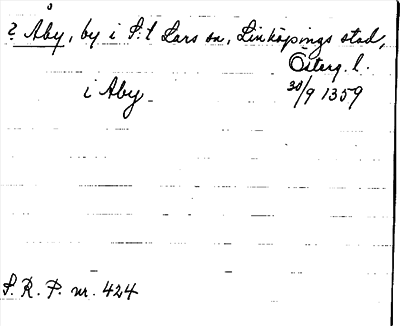 ? Åby, by i S:t Lars sn, Linköpings stad,
Österg. l.
i Aby
30/9 1359
S. R. P. nr. 424